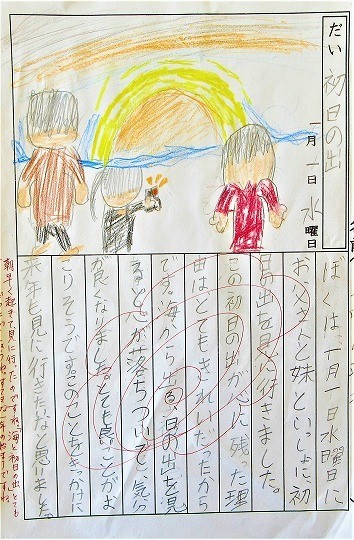 だい 初日の出
一月一日 水曜日
ぼくは、一月一日水曜日に
お父さんと妹といっしょに初
日の出を見に行きました。
この初日の出が心に残った理
由はとてもきれいだったから
です。海から出る日の出を見
ると心が落ちついて、気分
が良くなりました。とても良いことがお
こりそうです。このことをきっかけに
来年も見に行きたいなと思いました。
朝早く起きて見に行ったのですね。海と初日の出とても